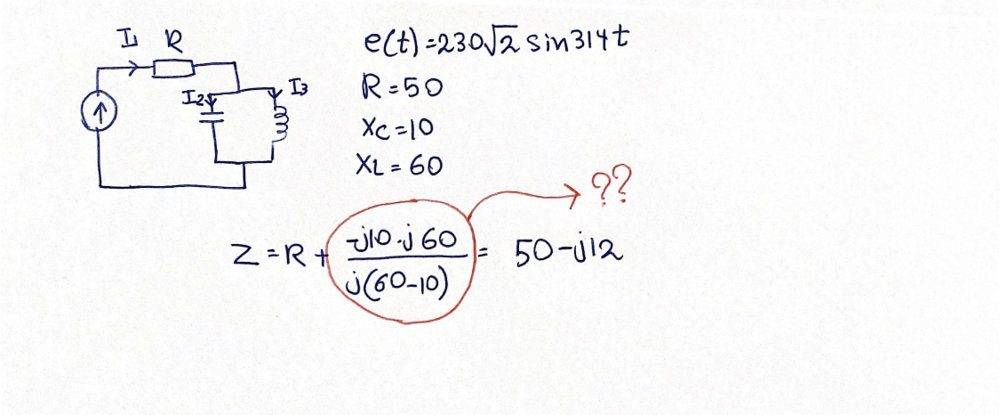 I₁ R
I₂
I₃
e(t)=230√2 sin314t
R=50
Xc=10
XL=60
??
Z=R+ (-j10·j60)/(j(60-10)) = 50-j12